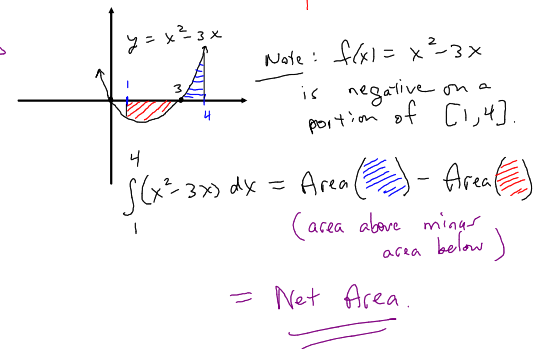 y = x² - 3x
1
3
4
Note: f(x) = x² - 3x
is negative on a
portion of [1,4].
∫₁⁴ (x² - 3x) dx = Area( ) - Area( )
(area above minus
area below)
= Net Area.